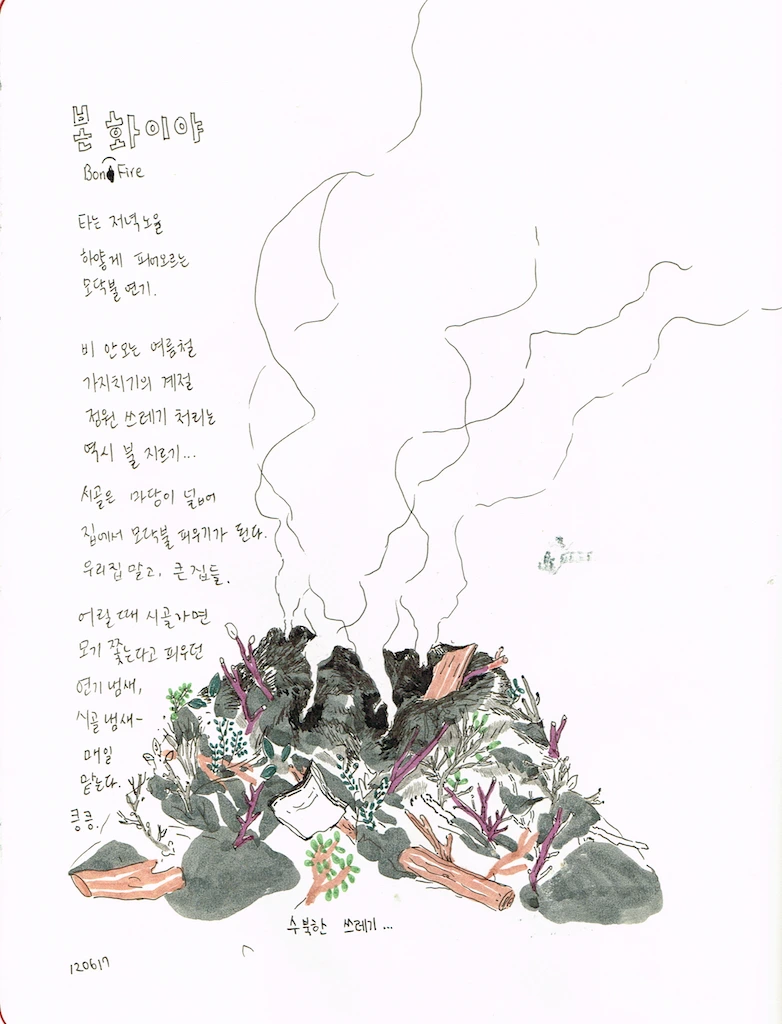 본 화이야
Bon Fire
타는 저녁노을
하얗게 피어오르는
모닥불 연기.
비 안오는 여름철
가지치기의 계절
정원 쓰레기 처리는
역시 불 지르기...
시골은 마당이 넓어
집에서 모닥불 피우기가 된다.
우리집 말고, 큰 집들.
어릴때 시골가면
모기 쫓는다고 피우던
연기 냄새,
시골 냄새~
매일
맡는다.
킁킁.
수북한 쓰레기...
120617